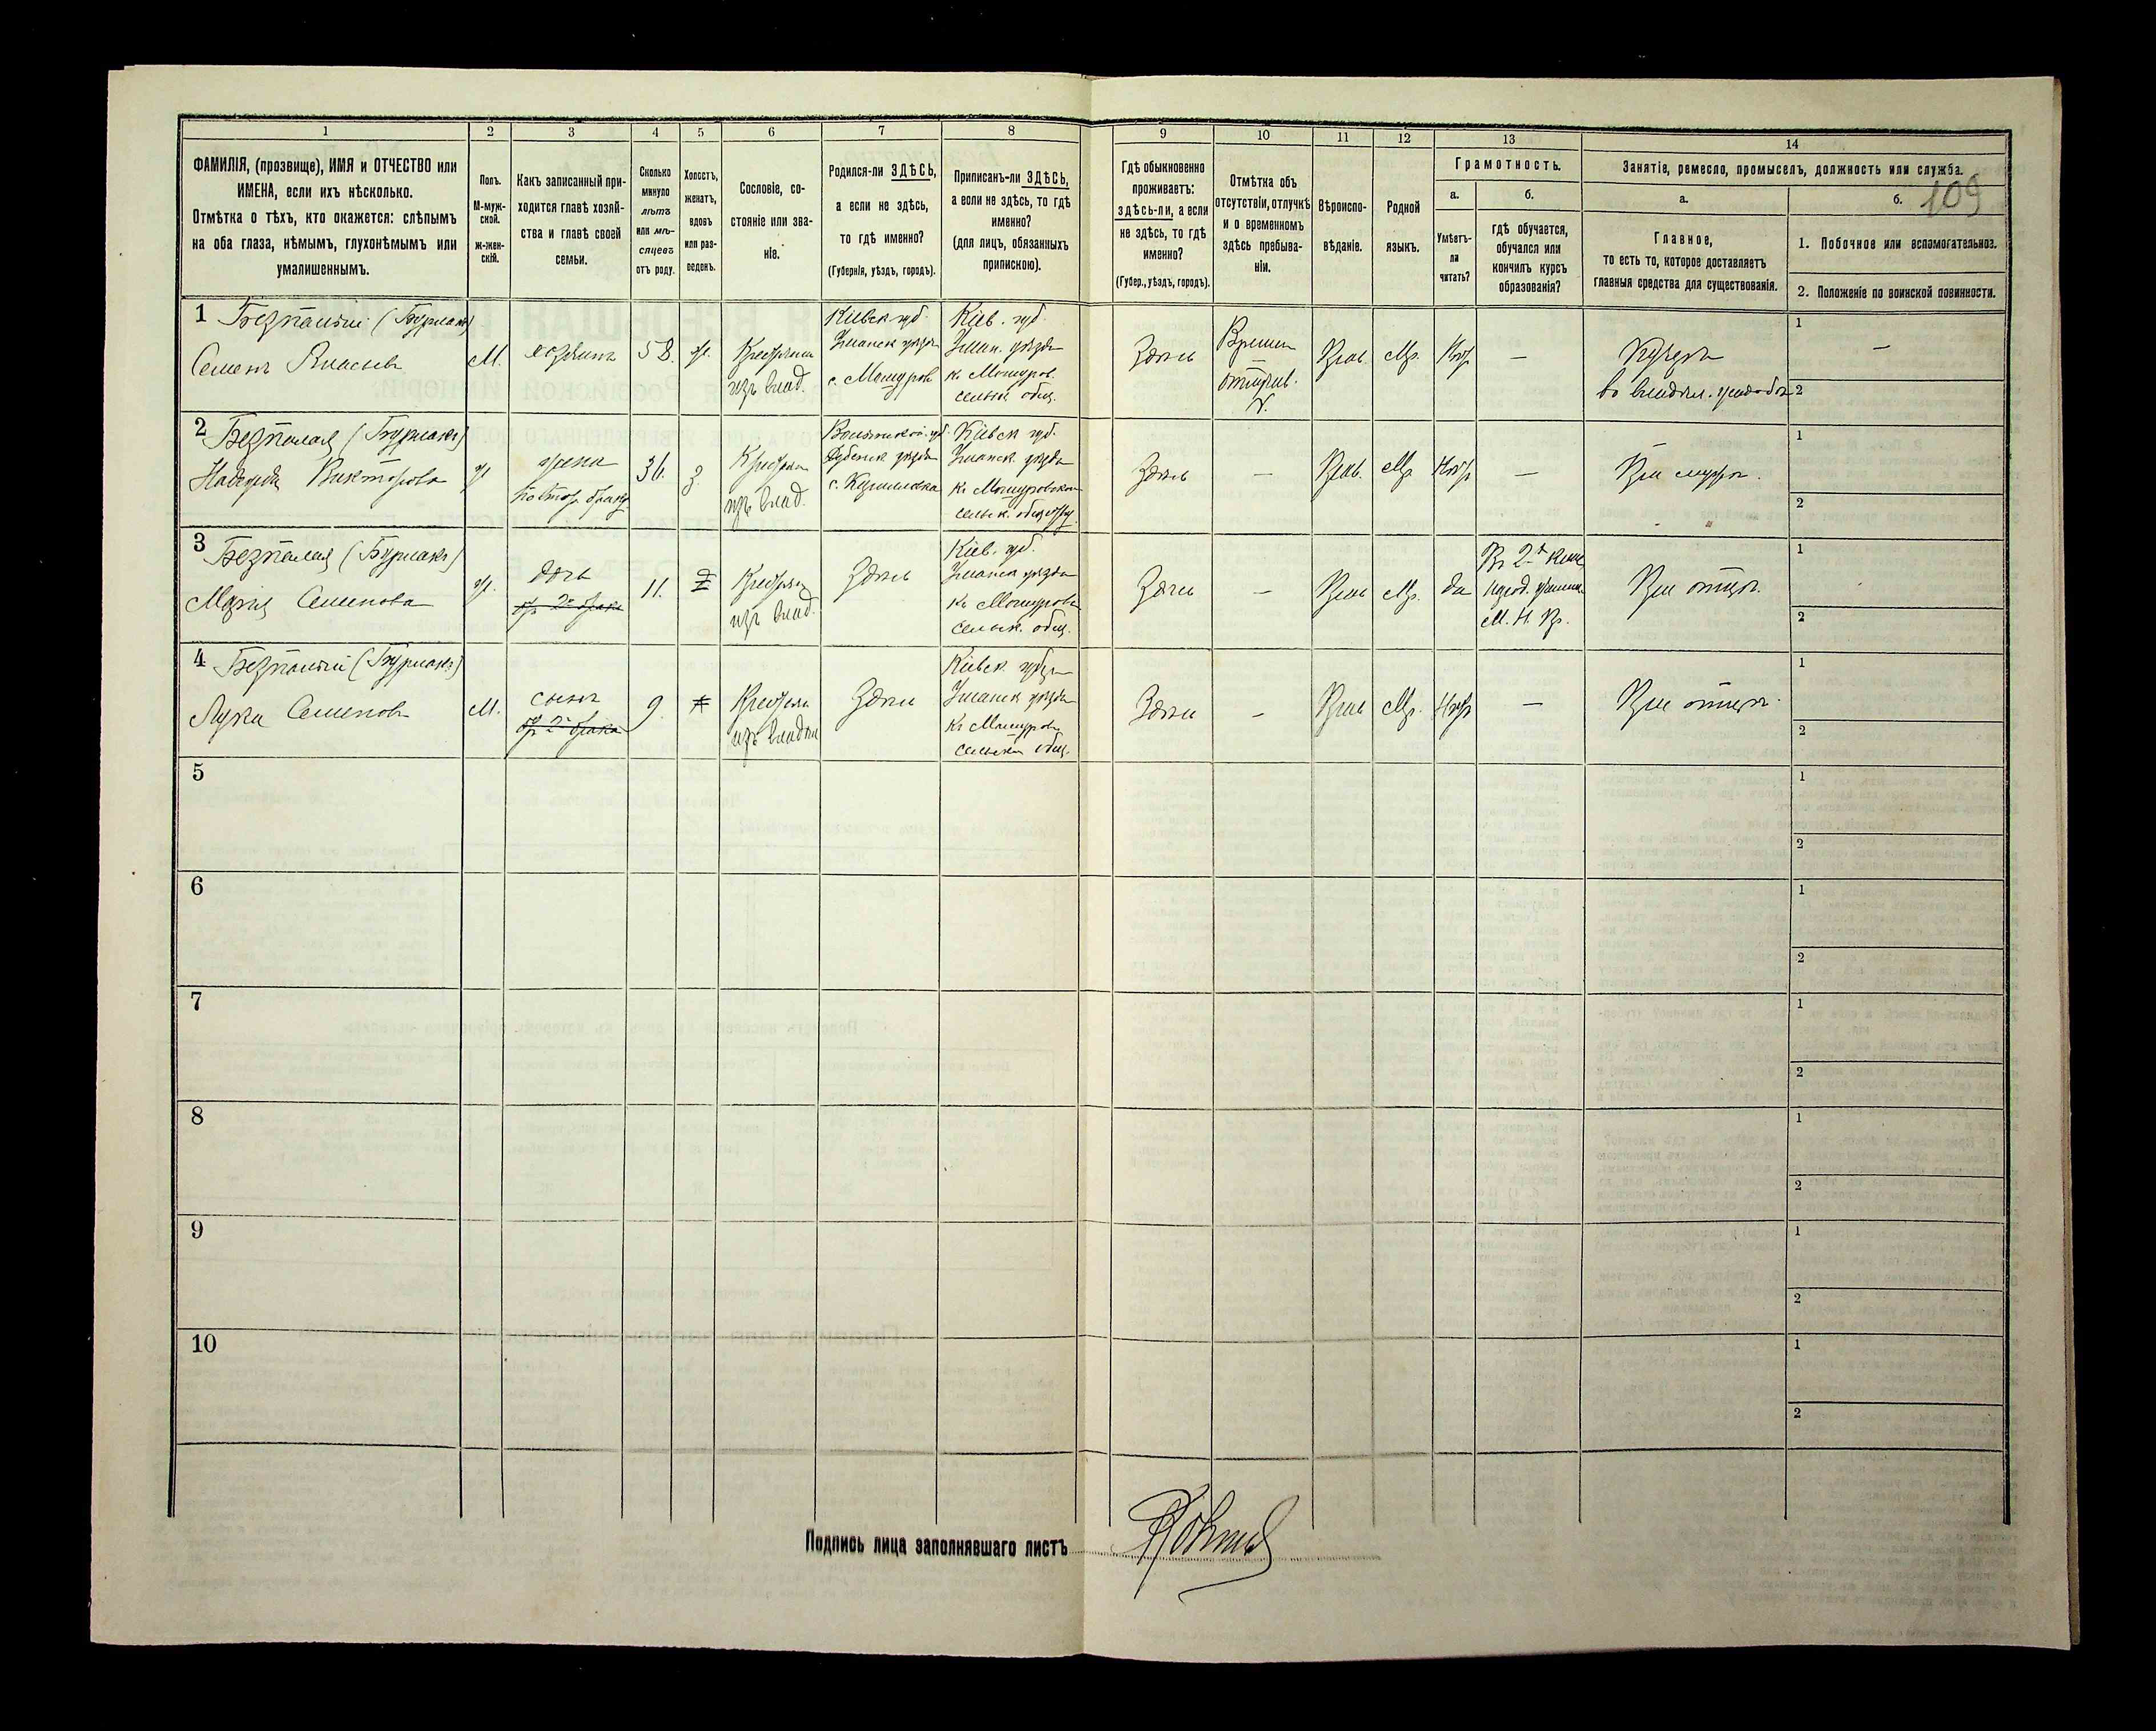 1
2
3
4
5
6
7
8
9
10
11
12
13
14
ФАМИЛІЯ, (прозвище), ИМЯ и ОТЧЕСТВО или
ИМЕНА, если ихъ нѣсколько.
Отмѣтка о тѣхъ, кто окажется: слѣпымъ
на оба глаза, нѣмымъ, глухонѣмымъ или
умалишеннымъ.
Полъ.
М-муж-
ской.
ж-жен-
скій.
Какъ записанный при-
ходится главѣ хозяй-
ства и главѣ своей
семьи.
Сколько
минуло
лѣтъ
или мѣ-
сяцевъ
отъ роду.
Холостъ,
женатъ,
вдовъ
или раз-
веденъ.
Сословіе, со-
стояніе или зва-
ніе.
Родился-ли ЗДѢСЬ,
а если не здѣсь,
то гдѣ именно?
(Губернія, уѣздъ, городъ).
Приписанъ-ли ЗДѢСЬ,
а если не здѣсь, то гдѣ
именно?
(для лицъ, обязанныхъ
припискою).
Гдѣ обыкновенно
проживаетъ:
здѣсь-ли, а если
не здѣсь, то гдѣ
именно?
(Губер., уѣздъ, городъ).
Отмѣтка объ
отсутствіи, отлучкѣ
и о временномъ
здѣсь пребыва-
ніи.
Вѣроиспо-
вѣданіе.
Родной
языкъ.
Грамотность.
а.
Умѣетъ-
ли
читать?
б.
гдѣ обучается,
обучался или
кончилъ курсъ
образованія?
Занятіе, ремесло, промыселъ, должность или служба.
а.
Главное,
то есть то, которое доставляетъ
главныя средства для существованія.
б.
109
1. Побочное или вспомогательное.
2. Положеніе по воинской повинности.
1 Безпалый (Бурлакъ)
Семенъ Власовъ
М.
хозяинъ
58.
ж.
Крестьян
изъ влад.
Кіевск губ.
Уманск уѣзда
с. Мошуров
Кіев. губ.
Уман. уѣзда
къ Мошуров.
сельск общ.
Здѣсь
Времен
отлуч.
Прав.
Мр.
Нѣт
—
Кучеръ
1
—
2
2 Безпалая (Бурлакъ)
Викторова
ж
жена
36.
з
Крестьян
изъ влад.
Волынской губ.
Дубенск уѣзда
Кіевск губ.
Уманск. уѣзда
къ Мошуровском
сельск. обществу.
Здѣсь
—
Прав.
Мр
Нѣт
—
При мужѣ.
1
2
3 Безпалая (Бурлакъ)
Мария Семенова
ж.
дочь
11.
Крестьян
изъ влад.
Здѣсь
Кіев. губ.
Уманск уѣзда
къ Мошуров
сельск. общ.
Здѣсь
—
Прав
Мр.
да
Въ 2хъ клас
народ. училищ
М. Н. Пр.
При отцѣ.
1
2
4 Безпалый (Бурлакъ)
Лука Семенов
М.
сынъ
9
Крестьян
изъ владѣл
Здѣсь
Кіевск. губ
Уманск уѣзда
къ Мошуров
сельском общ.
Здѣсь
—
Прав
Мр.
Нѣт
—
При отцѣ.
1
2
5
1
2
6
1
2
7
1
2
8
1
2
9
1
2
10
1
2
Подпись лица заполнявшаго листъ